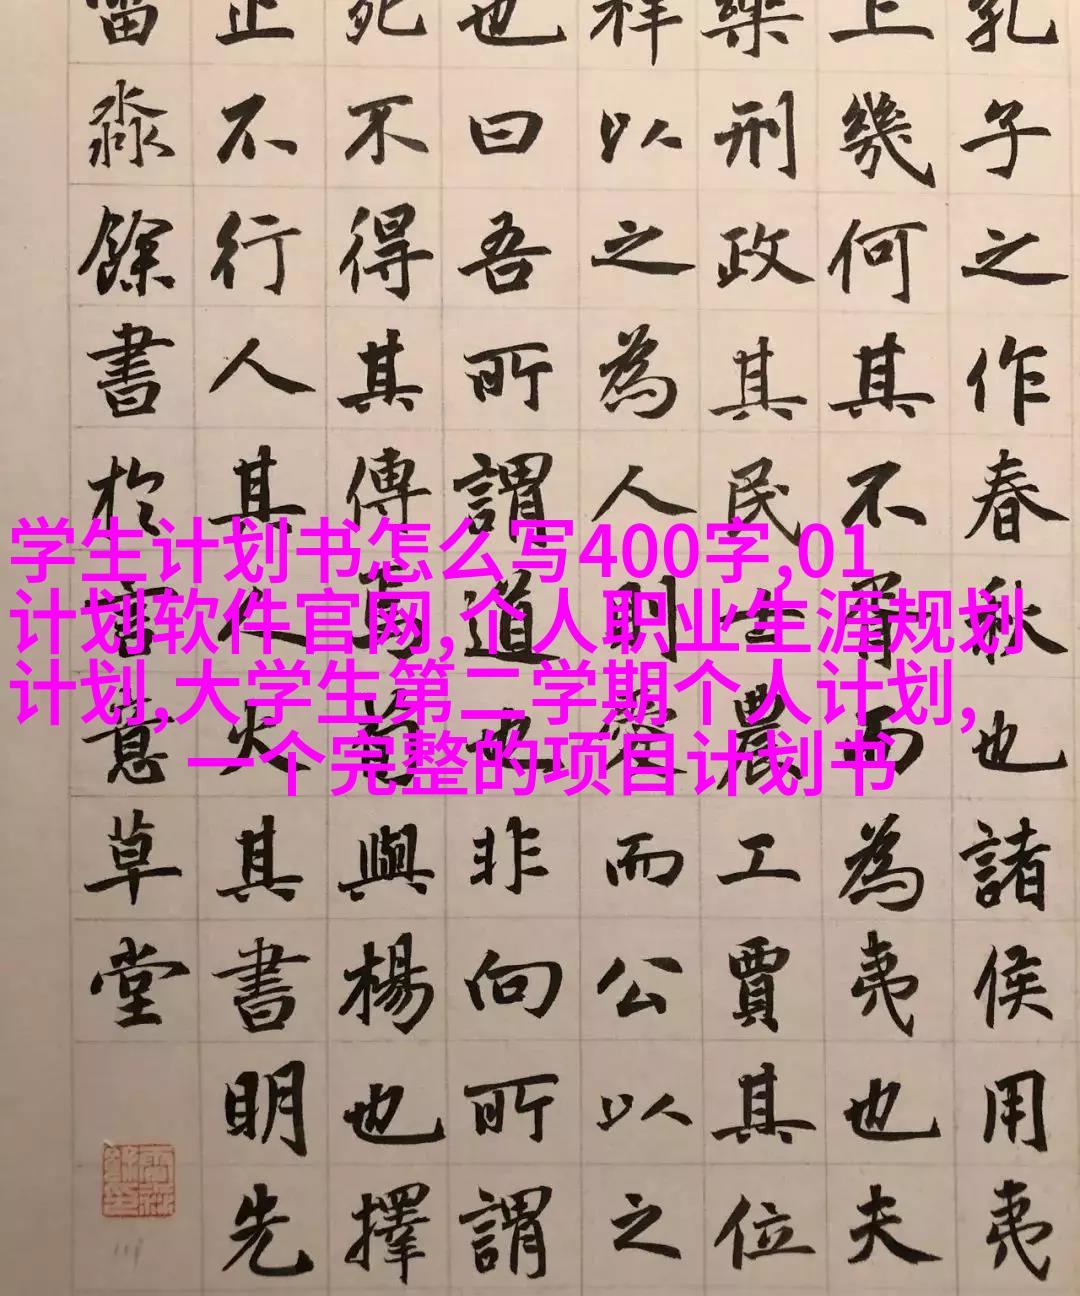 孔子之作春秋也諸侯用夷
上幾何其不胥而為夷也夫
樂刑政其民士農工賈其位
祥以之為人則愛而公以之
也曰吾所謂道也非向所謂
死不得其傳焉荀與楊也擇
止不行人其人火其書明先
淼餘書於意草堂
学生计划书怎么写400字,01
计划软件官网,个人职业生涯规划
计划,大学生第二学期个人计划,
一个完整的项目计划书